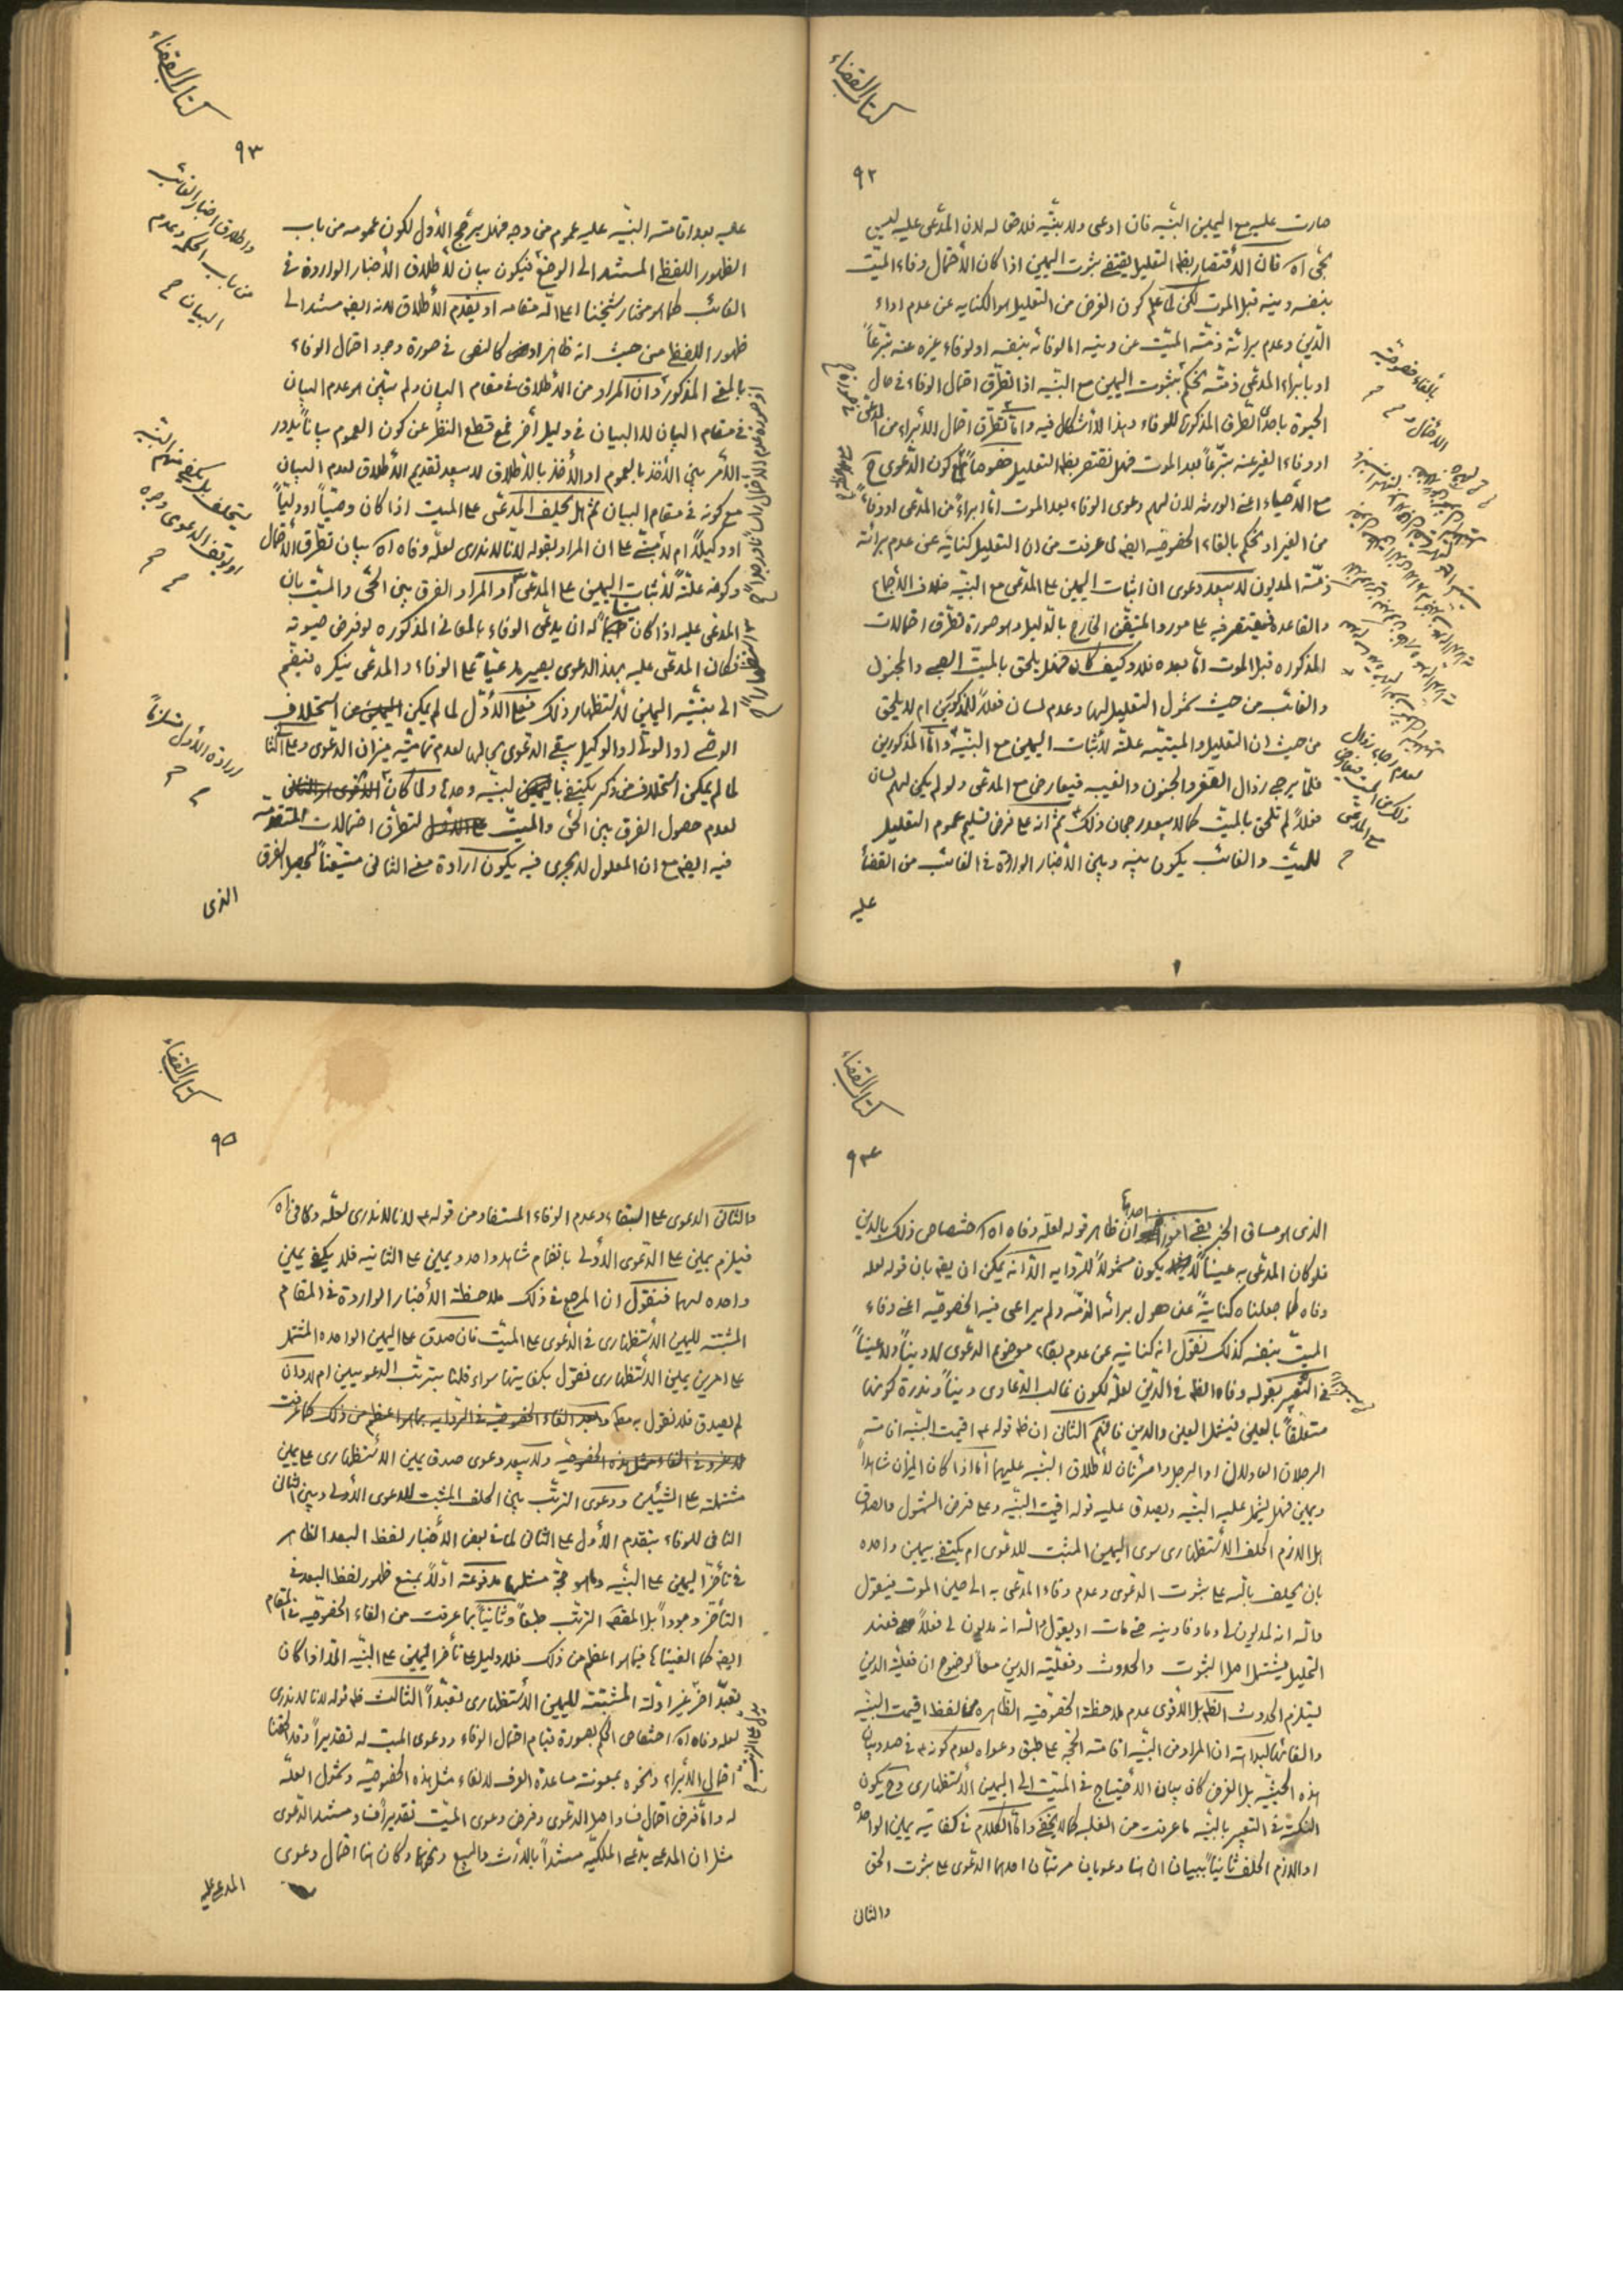 كتاب القضاء
٩٢
صارت عليه مع اليمين البينة فان ادعى ولا بينة فلا حق له لان المدعى عليه ليس
بحى اه فان الأقتصار بظاهر التعليل يقتضى ثبوت اليمين اذا كان الأحتمال وفاء الميت
بنفسه دينه قبل الموت لكن لما علم كون الغرض من التعليل هو الكناية عن عدم اداء
الدين وعدم برائة ذمة الميت عن دينه اما لوفائه بنفسه او لوفاء غيره عنه تبرعاً
او بأبراء المدعى ذمته يحكم بثبوت اليمين مع البينة اذا تطرق احتمال الوفاء فى حال
الحيوة باحدى الطرق المذكورة للوفاء وهذا لا أشكال فيه واما تطرق احتمال الأبراء من المدعى
او وفاء الغير عنه تبرعاً بعد الموت فهل نقتصر بظاهر التعليل خصوصاً مع كون الدعوى ح
مع الأحياء اعنى الورثة لان لهم دعوى الوفاء بعد الموت اما ابراء من المدعى او وفاء
من الغير او نحكم بالقاء الخصوصية ايضا لما عرفت من ان التعليل كناية عن عدم برائة
ذمة المديون لا يبعد دعوى ان اثبات اليمين على المدعى مع البينة خلاف الأجماع
والقاعدة فيقتصر فيه على مورد المتيقن الخارج بالدليل وهو صورة تطرق احتمالات
المذكوره قبل الموت اما بعده فلا وكيف كان فهل يلحق بالميت الصبى والمجنون
والغائب من حيث شمول التعليل لهما وعدم لسان فعلاً للمذكورين ام لا يلحق
من حيث ان التعليل والميتية علة لأثبات اليمين مع البينة واما المذكورين
فلما يرجى زوال الصغر والجنون والغيبة فيعارض مع المدعى ولو لم يكن لهم لسان
فعلاً لم تلحق بالميت كما لا يبعد رجحان ذلك ثم انه على فرض تسليم عموم التعليل
للميت والغائب يكون بينه وبين الأخبار الواردة فى الغائب من القضاء
عليه
بالقاء خصوصية
الأحتمال
لعدم رجاء زوال
ذلك من الميت فيعارض
مع المدعى
كتاب القضاء
٩٣
عليه بعد اقامته البينة عليه عموم من وجه فهل يرجح الأول لكون عمومه من باب
الظهور اللفظى المستند الى الوضع فيكون بيان لأطلاق الأخبار الواردة فى
الغائب كما هو مختار شيخنا اعلى الله مقامه او يقدم الأطلاق لانه ايضا مستند الى
ظهور اللفظ من حيث انه ظاهر كالنص فى صورة وجود احتمال الوفاء
بالمعنى المذكور وان المراد من الأطلاق فى مقام البيان ولم يتبين هو عدم البيان
فى مقام البيان لا البيان فى دليل أخر فمع قطع النظر عن كون العموم بياناً يدور
الأمر بين الأخذ بالعموم او الأخذ بالأطلاق لا يبعد تقديم الأطلاق لعدم البيان
مع كونه فى مقام البيان ثم هل يحلف المدعى على الميت اذا كان وصياً او ولياً
او وكيلاً ام لا مبنى على ان المراد بقوله لانا لا ندرى لعله وفاه اه بيان تطرق الأحتمال
وكونه علة لأثبات اليمين على المدعى او المراد الفرق بين الحى والميت بان
المدعى عليه اذا كان حياً له ان يدعى الوفاء بالمعانى المذكوره لو فرض حيوته
فكان المدعى عليه بهذا الدعوى يصير مدعياً على الوفاء والمدعى ينكره فيضم
الى بينته اليمين لأستظهار ذلك فعلى الأول لما لم يمكن من استحلاف
الوصى او الولى او الوكيل يبقى الدعوى بحالها لعدم تمامية ميزان الدعوى وعلى الثانى
لما لم يمكن استحلاف من ذكر يكتفى بالبينة وحدها ولما كان
لعدم حصول الفرق بين الحى والميت لتطرق احتمالات المتقدمة
فيه ايضا مع ان المعلول لا يجرى فيه يكون ارادة معنى الثانى متيقناً لحصول الفرق
الذى
واطلاق اخبار الغائب
من باب الحكمة وعدم
البيان
يتحلف بل يكفى منهم البينة
او يوقف الدعوى وجوه
ارادة الأول
كتاب القضاء
٩٤
الذى هو مساق الخبر بقى امور احدها ان ظاهر قوله لعله وفاه اه اختصاص ذلك بالدين
فلو كان المدعى به عيناً لا يكون مشمولاً للرواية الا انه يمكن ان يقال بان قوله لعله
وفاه كما جعلناه كناية عن حصول برائة الذمة ولم يراعى فيه الخصوصية اعنى وفاء
الميت بنفسه كذلك نقول انه كناية عن عدم بقاء موضوع الدعوى لا ديناً ولا عيناً
فى التعبير بقوله وفاه الظاهر فى الدين لعله لكون غالب الدعاوى ديناً وندرة كونها
متعلقاً بالعين فيشمل العين والدين فافهم الثانى ان ظاهر قوله ع اقيمت البينة اقامة
الرجلان العادلان او الرجل وامرئتان لأطلاق البينة عليهما اما اذا كان الميزان شاهداً
ويمين فهل يشمل عليه البينة ويصدق عليه قوله اقيمت البينة وعلى فرض الشمول والصدق
هل الازم الحلف الأستظهارى سوى اليمين المثبت للدعوى ام يكتفى بيمين واحده
بان يحلف بالله على ثبوت الدعوى وعدم وفاء المدعى به الى حين الموت فيقول
والله انه لمديون لى وما وفا دينه حتى مات او يقول والله انه مديون لى فعلاً فعند
التحليل يشتمل اصل الثبوت والحدوث وفعلية الدين معاً لوضوح ان فعلية الدين
يستلزم الحدوث الظاهر بل الأقوى عدم ملاحظة الخصوصية الظاهره من لفظ اقيمت البينة
والقائها لبداهة ان المراد من البينة اقامة الحجة على طبق دعواه لعدم كونه فى صدد بيان
هذه الحيثية بل الغرض كان بيان الأحتياج فى الميت الى اليمين الأستظهارى وح يكون
النكتة فى التعبير بالبينة ما عرفت من الغلبه كما لا يخفى واما الكلام فى كفاية يمين الواحدة
او الازم الحلف ثانياً ببيان ان هنا دعويان مرتبتان احدهما الدعوى على ثبوت الحق
والثانى
كتاب القضاء
٩٥
والثانى الدعوى على البقاء وعدم الوفاء المستفاد من قوله ع لانا لا ندرى لعله وفاه اه
فيلزم يمين على الدعوى الأولى بانضمام شاهد واحد ويمين على الثانيه فلا يكفى يمين
واحده لهما فنقول ان المرجع فى ذلك ملاحظة الأخبار الواردة فى المقام
المثبتة لليمين الأستظهارى فى الدعوى على الميت فان صدق على اليمين الواحده المشتمل
على امرين يمين الأستظهارى فنقول بكفايتها سواء قلنا بترتب الدعويين ام لا وان
لم يصدق فلا نقول به
ولا يبعد دعوى صدق يمين الأستظهارى على يمين
مشتملة على الشيئين ودعوى الترتب بين الحلف المثبت للدعوى الأولى وبين الثانى
النافى للوفاء بتقدم الأول على الثانى لما فى بعض الأخبار لفظ البعد الظاهر
فى تأخر اليمين على البينة وما هو حجة مثلها مدفوعة اولاً بمنع ظهور لفظ البعد فى
التأخر وجوداً بل المقصود الترتب طبعاً وثانياً بما عرفت من القاء الخصوصية فى المقام
ايضا كما القيناها فيما هو اعظم من ذلك فلا دليل على تأخر اليمين على البينة الا اذا كان
تعبداً اخر غير ادلة المثبتة لليمين الأستظهارى تعبداً الثالث ظاهر قوله لانا لا ندرى
لعله وفاه اه اختصاص الحكم بصورة قيام احتمال الوفاء ودعوى الميت له تقديراً وقد الحقنا
احتمال الأبراء ونحوه بمعونة مساعدة العرف لالقاء مثل هذه الخصوصية وشمول العلة
له واما فرض احتمال فساد اصل الدعوى وفرض دعوى الميت تقديراً فساد مستند الدعوى
مثل ان المدعى يدعى الملكية مستنداً بالأرث والبيع ونحوهما وكان هنا احتمال دعوى
المدعى عليه